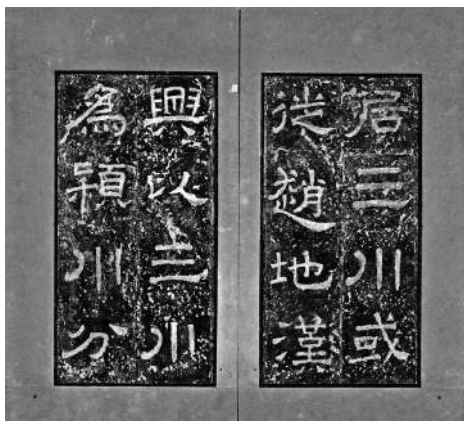 居三川或
徙趙地漢
興以三川
爲潁川分